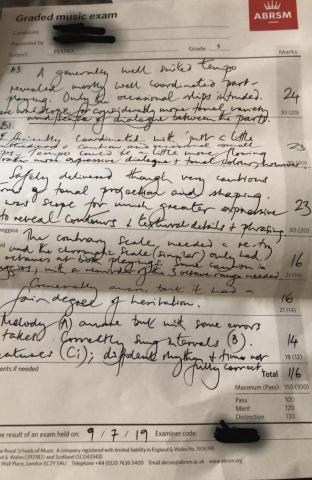 Graded music exam
ABRSM
Candidate
Presented by
Subject PIANO Grade 5
Marks
A3 A generally well suited tempo
revealed mostly well coordinated part-
playing. Only the occasional slips intruded.
scope for considerably more tonal variety
and sense of dialogue between the parts. 24
30 (20)
B1
Efficiently coordinated with just a little
caution and small
Tempo could be a little more flowing
more expressive dialogue & tonal colour 23
30 (20)
Safely delivered though very cautious
of tonal projection and shaping.
was scope for much greater expressive 23
to reveal contours & textural details & phrasing. 30 (20)
The contrary scale needed a re-try
and the chromatic scale (similar) only had
octaves at both playings. Some caution in
with a reminder of the 3 octave range needed. 16
21 (14)
Generally but it had a
fair degree of hesitation. 16
21 (14)
Melody (A) aware but with some errors
Correctly sung intervals (B). 14
(Ci); different rhythm & time not 18 (12)
fully correct.
Total 116
Maximum (Pass) 150 (100)
Pass 100
Merit 120
Distinction 130
result of an exam held on: 9/7/19 Examiner code:
Royal Schools of Music. A company registered with limited liability in England & Wales No. 1926395
& Wales (292182) and Scotland (SC043340)
Wall Place, London EC2Y 5AU Telephone +44 (0)20 7636 5400 Email abrsm@abrsm.ac.uk www.abrsm.org